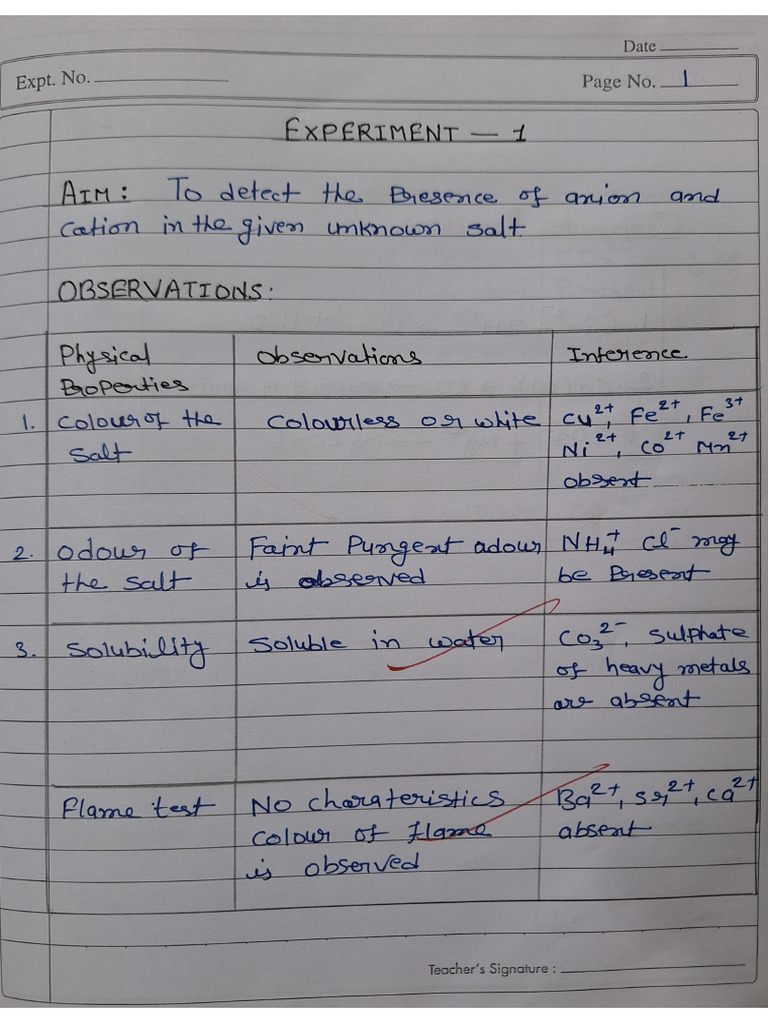 Date
Expt. No.
Page No. 1
EXPERIMENT — 1
AIM: To detect the Presence of anion and
cation in the given unknown salt
OBSERVATIONS:
Physical Properties
Observations
Inference
1. Colour of the Salt
Colourless or white
Cu²⁺, Fe²⁺, Fe³⁺
Ni²⁺, Co²⁺ Mn²⁺
absent
2. Odour of the salt
Faint Pungent adour
is observed
NH₄⁺ Cl⁻ may
be Present
3. Solubility
Soluble in water
CO₃²⁻, sulphate
of heavy metals
are absent
Flame test
No charateristics
colour of flame
is observed
Ba²⁺, Sr²⁺, Ca²⁺
absent
Teacher's Signature :